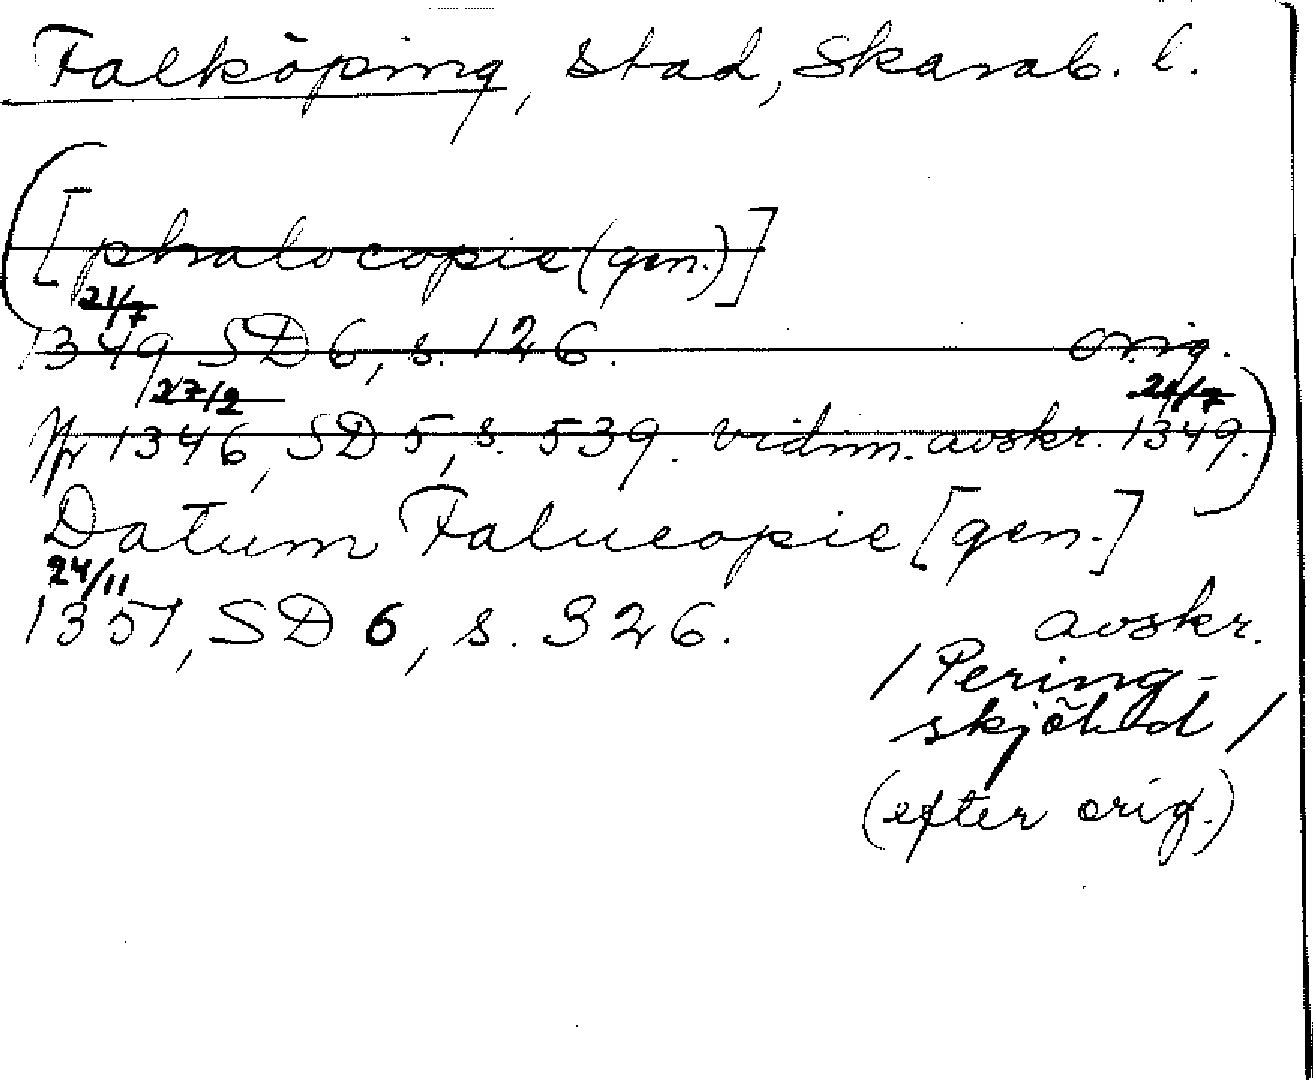 Falköping, stad, Skarab. l.
[phalocopie (gen.)]
21/7
1349 SD 6, s. 126. orig.
27/2 21/7
Nr 1346, SD 5, s. 539. vidim. avskr. 1349.
Datum Falucopie [gen.]
24/11
1351, SD 6, s. 326. avskr.
/Pering-
skjöld/
(efter orig.)